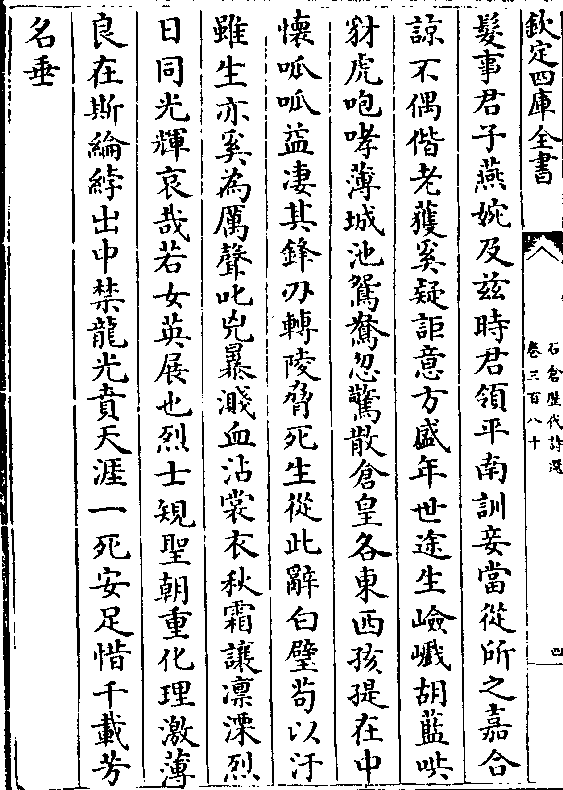 欽定四庫全書
石倉歷代詩選
卷三百八十
四
髮事君子燕婉及茲時君領平南訓妾當從所之嘉合
諒不偶偕老蒦奚疑詎意方盛年世途生嶮巇胡藍哄
豺虎咆哮薄城池鴛鴦忽驚散倉皇各東西孩提在中
懷呱呱益凄其鋒刃轉陵脅死生從此辭白璧苟以汙
雖生亦奚為厲聲叱兇暴濺血沾裳衣秋霜讓凛溧烈
日同光輝哀哉若女英展也烈士䂓聖朝重化理激薄
良在斯綸綍出中禁龍光賁天涯一死安足惜千載芳
名垂